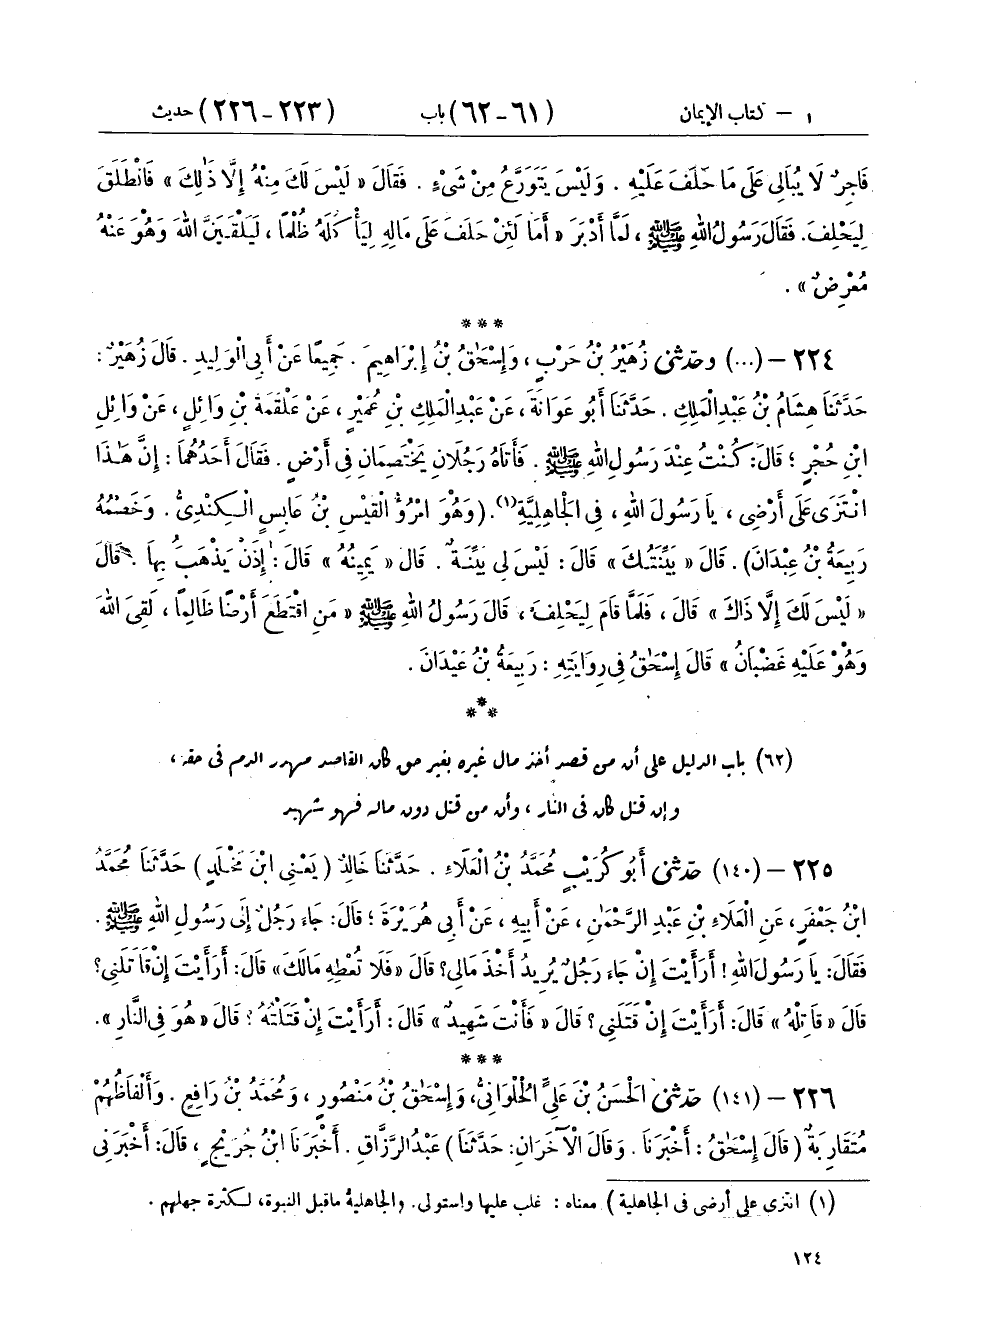 ١ – كتاب الإيمان (٦١-٦٢) باب (٢٢٣-٢٢٦) حديث
فَاجِرٌ لَا يُبَالِي عَلَى مَا حَلَفَ عَلَيْهِ . وَلَيْسَ يَتَوَرَّعُ مِنْ شَيْءٍ . فَقَالَ « لَيْسَ لَكَ مِنْهُ إِلَّا ذٰلِكَ » فَانْطَلَقَ
لِيَحْلِفَ. فَقَالَ رَسُولُ اللهِ ﷺ ، لَمَّا أَدْبَرَ « أَمَا لَئِنْ حَلَفَ عَلَى مَالِهِ لِيَأْكُلَهُ ظُلْمًا ، لَيَلْقَيَنَّ اللهَ وَهُوَ عَنْهُ
مُعْرِضٌ » .
***
٢٢٤ – (...) وحدثني زُهَيْرُ بْنُ حَرْبٍ ، وَإِسْحٰقُ بْنُ إِبْرَاهِيمَ . جَمِيعًا عَنْ أَبِي الْوَلِيدِ . قَالَ زُهَيْرٌ :
حَدَّثَنَا هِشَامُ بْنُ عَبْدِ الْمَلِكِ . حَدَّثَنَا أَبُو عَوَانَةَ ، عَنْ عَبْدِ الْمَلِكِ بْنِ عُمَيْرٍ ، عَنْ عَلْقَمَةَ بْنِ وَائِلٍ ، عَنْ وَائِلِ
ابْنِ حُجْرٍ ؛ قَالَ: كُنْتُ عِنْدَ رَسُولِ اللهِ ﷺ . فَأَتَاهُ رَجُلَانِ يَخْتَصِمَانِ فِي أَرْضٍ . فَقَالَ أَحَدُهُمَا : إِنَّ هٰذَا
انْتَزَى عَلَى أَرْضِي ، يَا رَسُولَ اللهِ ، فِي الْجَاهِلِيَّةِ(١). (وَهُوَ امْرُؤُ الْقَيْسِ بْنُ عَابِسٍ الْكِنْدِيُّ . وَخَصْمُهُ
رَبِيعَةُ بْنُ عِبْدَانَ) . قَالَ « بَيِّنَتُكَ » قَالَ : لَيْسَ لِي بَيِّنَةٌ . قَالَ « يَمِينُهُ » قَالَ : إِذَنْ يَذْهَبُ بِهَا . قَالَ
« لَيْسَ لَكَ إِلَّا ذَاكَ » قَالَ ، فَلَمَّا قَامَ لِيَحْلِفَ ، قَالَ رَسُولُ اللهِ ﷺ « مَنِ اقْتَطَعَ أَرْضًا ظَالِمًا ، لَقِيَ اللهَ
وَهُوَ عَلَيْهِ غَضْبَانُ » قَالَ إِسْحٰقُ فِي رِوَايَتِهِ : رَبِيعَةُ بْنُ عَيْدَانَ .
***
(٦٢) باب الدليل على أن من قصد أخذ مال غيره بغير حق كان القاصد مهدر الدم فى حقه ،
وإن قتل كان فى النار ، وأن من قتل دون ماله فهو شهيد
٢٢٥ – (١٤٠) حدثني أَبُو كُرَيْبٍ مُحَمَّدُ بْنُ الْعَلَاءِ . حَدَّثَنَا خَالِدٌ ( يَعْنِي ابْنَ مَخْلَدٍ ) حَدَّثَنَا مُحَمَّدُ
ابْنُ جَعْفَرٍ ، عَنِ الْعَلَاءِ بْنِ عَبْدِ الرَّحْمٰنِ ، عَنْ أَبِيهِ ، عَنْ أَبِي هُرَيْرَةَ ؛ قَالَ: جَاءَ رَجُلٌ إِلَى رَسُولِ اللهِ ﷺ .
فَقَالَ: يَا رَسُولَ اللهِ! أَرَأَيْتَ إِنْ جَاءَ رَجُلٌ يُرِيدُ أَخْذَ مَالِي؟ قَالَ «فَلَا تُعْطِهِ مَالَكَ» قَالَ: أَرَأَيْتَ إِنْ قَاتَلَنِي؟
قَالَ « قَاتِلْهُ » قَالَ: أَرَأَيْتَ إِنْ قَتَلَنِي ؟ قَالَ « فَأَنْتَ شَهِيدٌ » قَالَ : أَرَأَيْتَ إِنْ قَتَلْتُهُ ؟ قَالَ « هُوَ فِي النَّارِ ».
***
٢٢٦ – (١٤١) حدثني الْحَسَنُ بْنُ عَلِيٍّ الْحُلْوَانِيُّ، وَإِسْحٰقُ بْنُ مَنْصُورٍ ، وَمُحَمَّدُ بْنُ رَافِعٍ . وَأَلْفَاظُهُمْ
مُتَقَارِبَةٌ ( قَالَ إِسْحٰقُ : أَخْبَرَنَا . وَقَالَ الْآخَرَانِ: حَدَّثَنَا ) عَبْدُ الرَّزَّاقِ . أَخْبَرَنَا ابْنُ جُرَيْجٍ ، قَالَ: أَخْبَرَنِي
(١) انتزى على أرضى فى الجاهلية ) معناه : غلب عليها واستولى. والجاهلية ماقبل النبوة، لكثرة جهلهم .
١٢٤